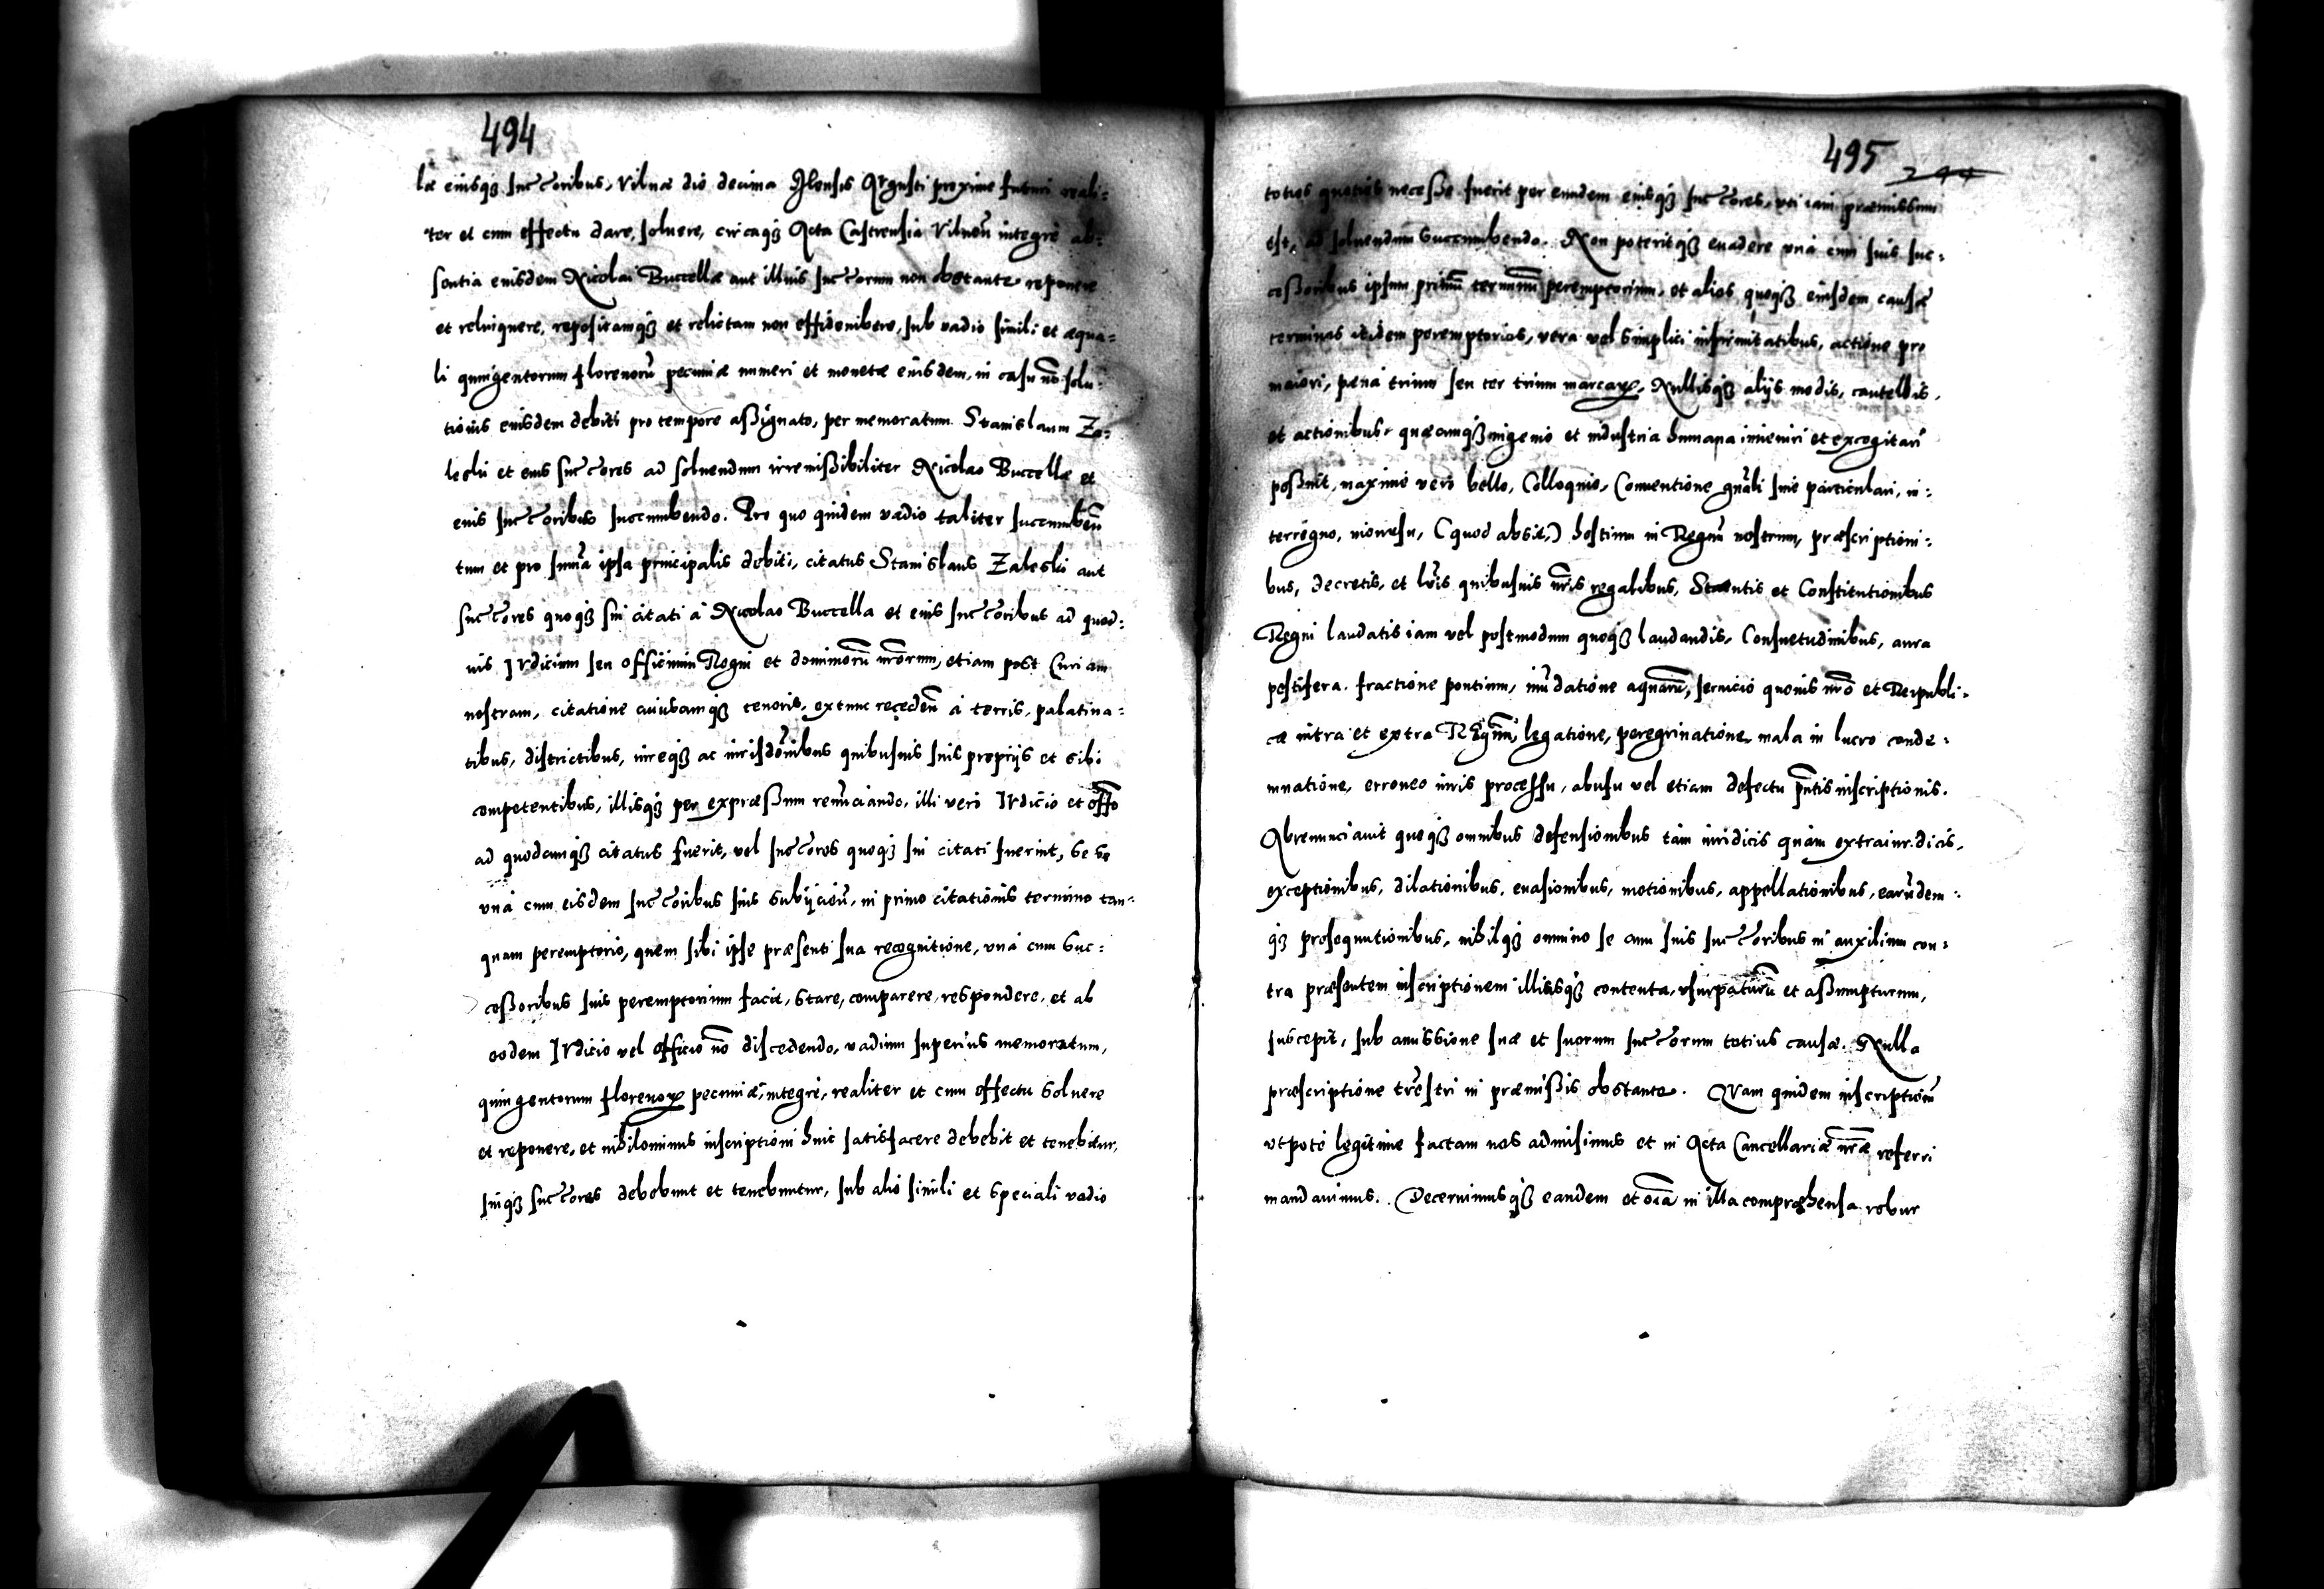 494
læ eiusq₃ succ̄oribus, Vilnæ die decima Mensis Augusti proxime futuri reali:
ter et cum effectu dare, soluere, circaq₃ Acta Castrensia Vilneñ integrè ab:
sentia eiusdem Nicolai Buccellæ aut illius succ̄orum non obstante reponere
et relinquere, repositamq₃ et relictam non , sub vadio simili et æqua:
li quingentorum florenorū pecuniæ numeri et monetæ eiusdem, in casu nō solu:
tionis eiusdem debiti pro tempore aßignato, per memoratum Stanislaum Za:
leski et eius succ̄ores ad soluendum irremißibiliter Nicolao Buccellæ et
eius succ̄oribus succumbendo. Pro quo quidem vadio taliter succumbeñ
tum et pro summa ipsa principalis debiti, citatus Stanislaus Zaleski aut
succ̄ores quoq₃ sui citati à Nicolao Buccella et eius succ̄oribus ad quod:
uis Iudicium seu officium Regni et dominiorū nr̄orum, etiam post Curiam
nostram, citatione cuiuscumq₃ tenoris, extunc recedeñ à terris, palatina:
tibus, districtibus, iureq₃ ac iurisdōnibus quibusuis suis proprijs et sibi
competentibus, illisq₃ per expræßum renūciando, illi verò Iudicio et offō
ad quodcumq₃ citatus fuerit, vel succ̄ores quoq₃ sui citati fuerint, se se
vnà cum eisdem succ̄oribus suis subijcieñ, in primo citationis termino tan:
quam peremptorio, quem sibi ipse præsenti sua recognitione, vnà cum suc:
ceßoribus suis peremptorium facit, stare, comparere, respondere, et ab
eodem Iudicio vel officio nō discedendo, vadium superius memoratum,
quingentorum florenorꝝ pecuniæ, integrè, realiter et cum effectu soluere
et reponere, et nihilominus inscriptioni huic satisfacere debebit et tenebitur,
suiq₃ succ̄ores debebunt et tenebuntur, sub alio simili et speciali vadio
495 244
toties quoties neceße fuerit per eundem eiusq₃ succ̄ores, vti iam præmissum
est, ad soluendum succumbendo. Non poteritq₃ euadere vnà cum suis suc:
ceßoribus ipsum primū terminū peremptorium, et alios quoq₃ eiusdem causæ
terminos itidem peremptorios, vera vel simplici infirmitatibus, actione pro
maiori, pena trium seu ter trium marcarꝝ, Nullisq₃ alijs modis, cautellis,
et actionibus, quæcumq₃ ingenio et industria humana inueniri et excogitari
poßint, maximè verò bello, Colloquio, Conuentione gnāli siue particulari, in:
terregno, incursu, (quod absit,) hostium in Regnū nostrum, præscriptioni:
bus, decretis, et lr̄is quibusuis nr̄is regalibus, Statutis et Constitutionibus
Regni laudatis iam vel postmodum quoq₃ laudandis, Consuetudinibus, aura
pestifera, fractione pontium, inūdatione aquarū, seruicio quouis nrō et Reipubli:
cæ intra et extra Regnū, legatione, peregrinatione, mala in lucro conde:
mnatione, erroneo iuris processu, abusu vel etiam defectu pn̄tis inscriptionis.
Abrenunciauit quoq₃ omnibus defensionibus tàm iuridicis quàm extraiuridicis,
exceptionibus, dilationibus, euasionibus, motionibus, appellationibus, earūdem:
q₃ prosequutionibus, nihilq₃ omnino se cum suis succ̄oribus in auxilium con:
tra præsentem inscriptionem illiusq₃ contenta, vsurpaturū et aßumpturum,
suscepit, sub amissione suæ et suorum succ̄orum totius causæ. Nulla
præscriptione tr̄estri in præmißis obstante. Quam quidem inscriptionē
vtpotè legitimè factam nos admisimus et in Acta Cancellariæ nr̄æ referri
mandauimus. Decernimusq₃ eandem et oīa in illa compræhensa robur